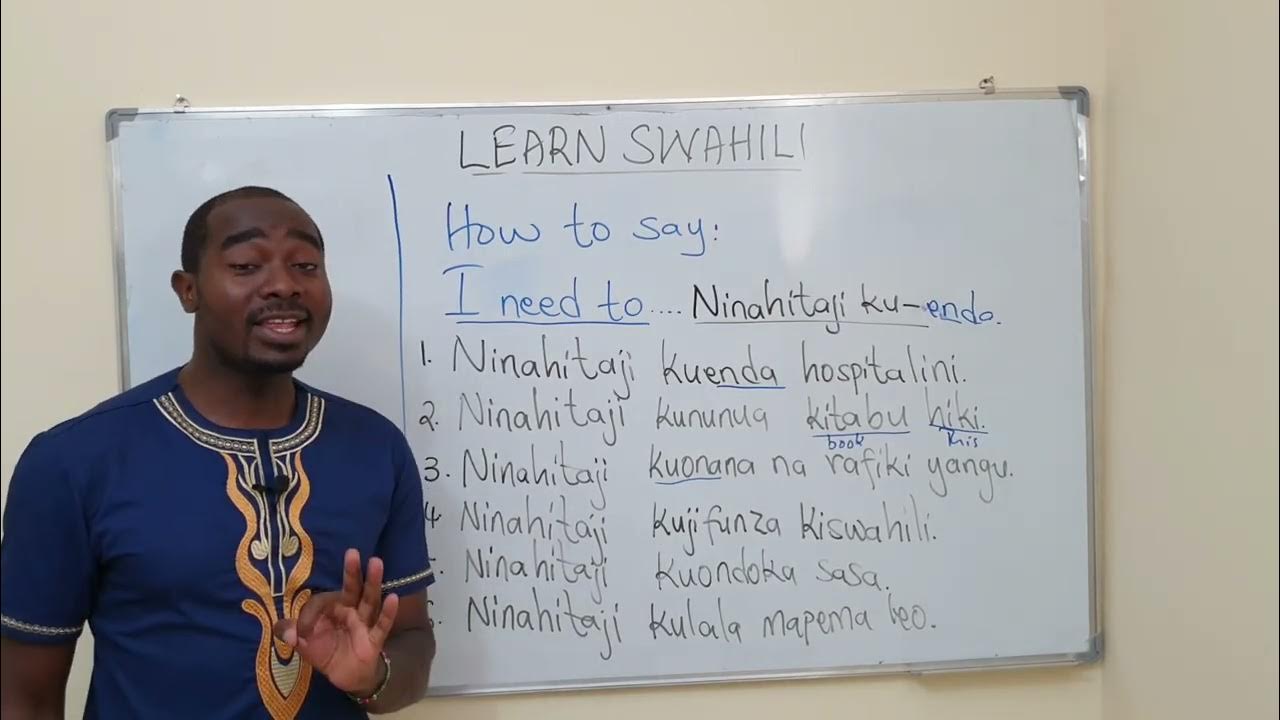 LEARN SWAHILI
How to say:
I need to .... Ninahitaji ku-enda.
1. Ninahitaji kuenda hospitalini.
2. Ninahitaji kununua kitabu hiki.
book this
3. Ninahitaji kuonana na rafiki yangu.
4 Ninahitaji kujifunza kiswahili.
Ninahitaji kuondoka sasa.
Ninahitaji kulala mapema leo.